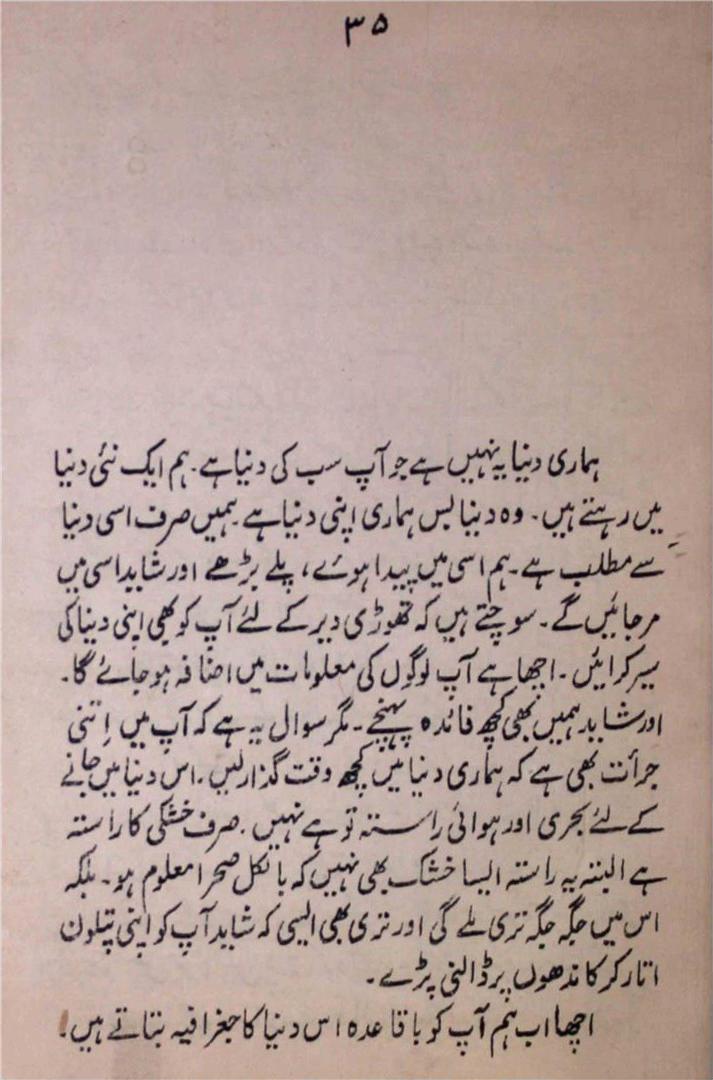 ۳۵
ہماری دنیا یہ نہیں ہے جو آپ سب کی دنیا ہے۔ ہم ایک نئی دنیا
میں رہتے ہیں۔ وہ دنیا بس ہماری اپنی دنیا ہے۔ ہمیں صرف اسی دنیا
سے مطلب ہے۔ ہم اسی میں پیدا ہوئے، پلے بڑھے اور شاید اسی میں
مر جائیں گے۔ سوچتے ہیں کہ تھوڑی دیر کے لئے آپ کو بھی اپنی دنیا کی
سیر کرائیں۔ اچھا ہے آپ لوگوں کی معلومات میں اضافہ ہو جائے گا۔
اور شاید ہمیں بھی کچھ فائدہ پہنچے۔ مگر سوال یہ ہے کہ آپ میں اِتنی
جرأت بھی ہے کہ ہماری دنیا میں کچھ وقت گذار لیں۔ اس دنیا میں جانے
کے لئے بحری اور ہوائی راستہ تو ہے نہیں۔ صرف خشکی کا راستہ
ہے البتہ یہ راستہ ایسا خشک بھی نہیں کہ بالکل صحرا معلوم ہو۔ بلکہ
اس میں جگہ جگہ تری ملے گی اور تری بھی ایسی کہ شاید آپ کو اپنی پتلون
اتار کر کاندھوں پر ڈالنی پڑے۔
اچھا اب ہم آپ کو باقاعدہ اس دنیا کا جغرافیہ بتاتے ہیں!